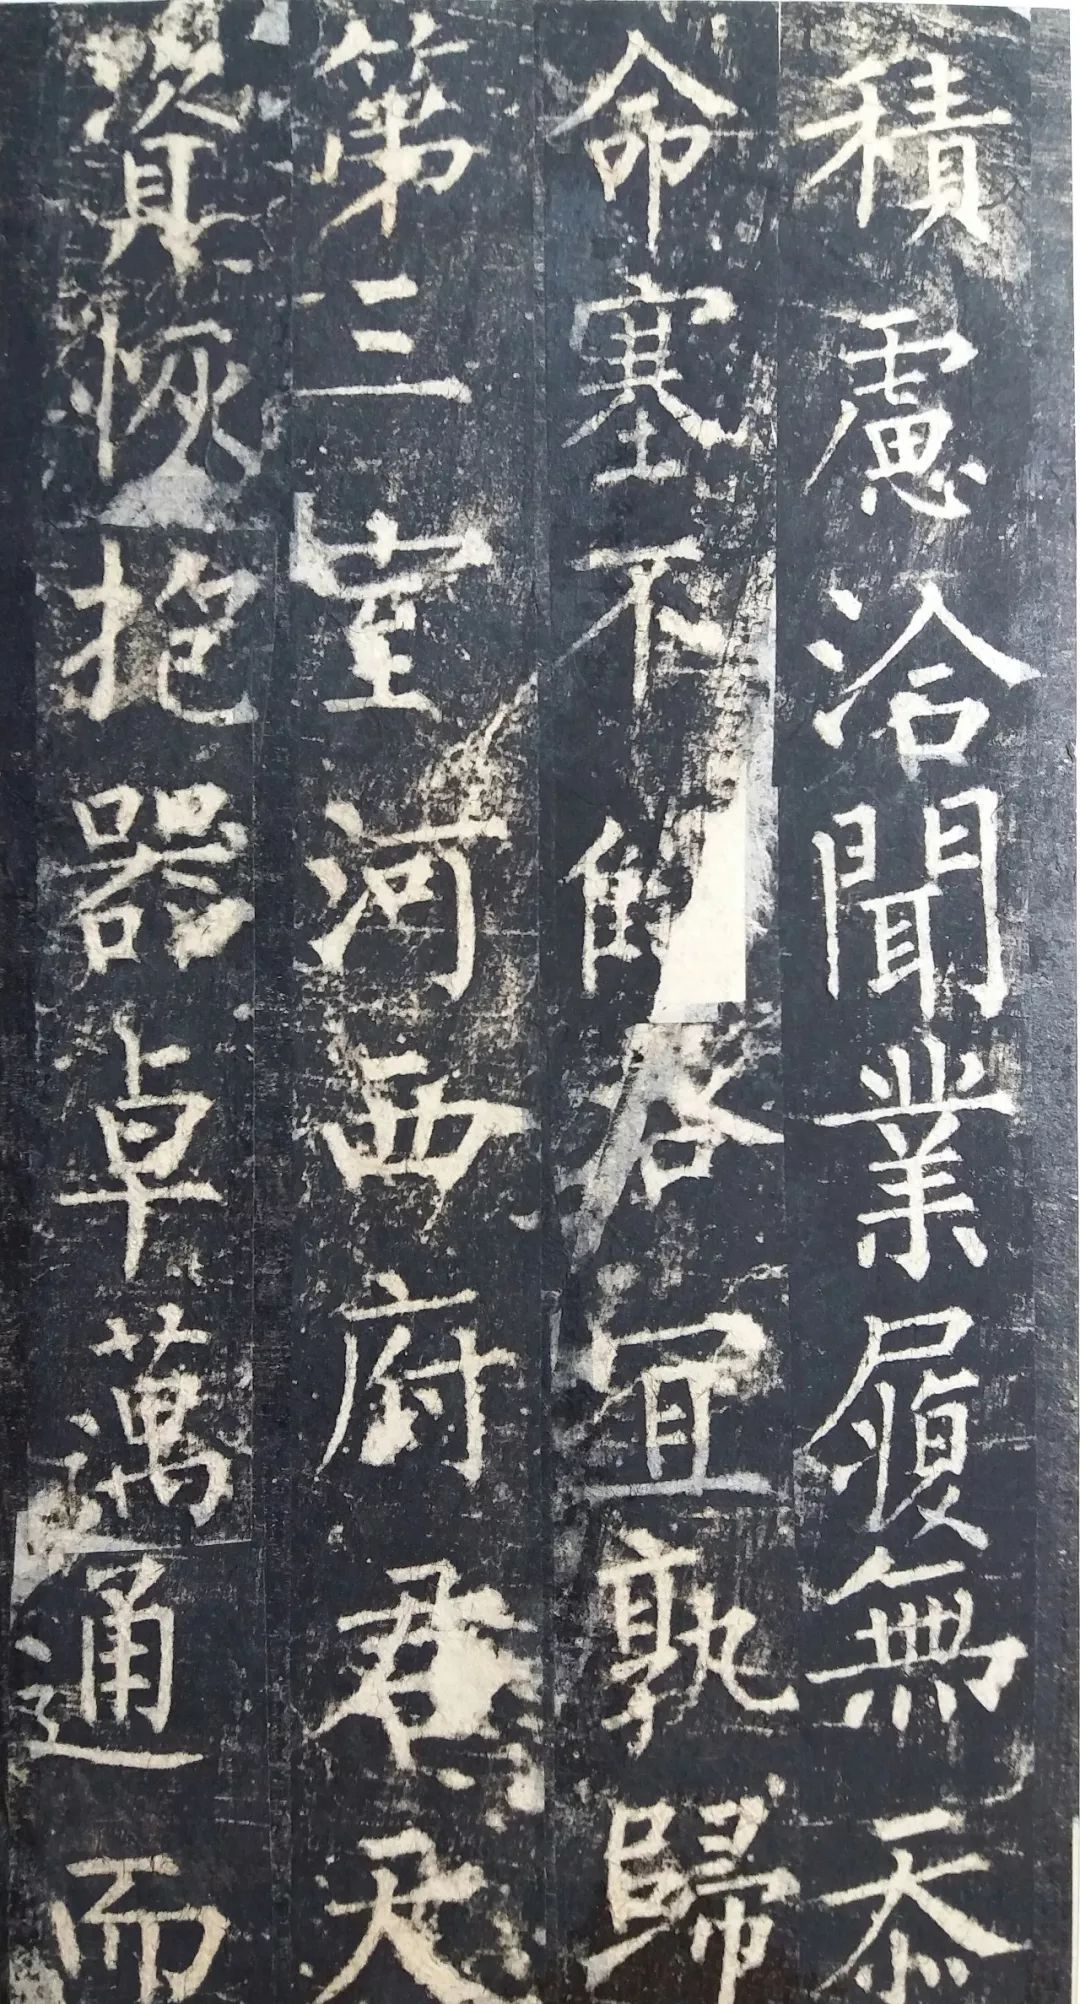 積慮洽聞業履無忝
命塞不俻咎宜孰歸
第三室河西府君天
資恢抱器卓萬通而